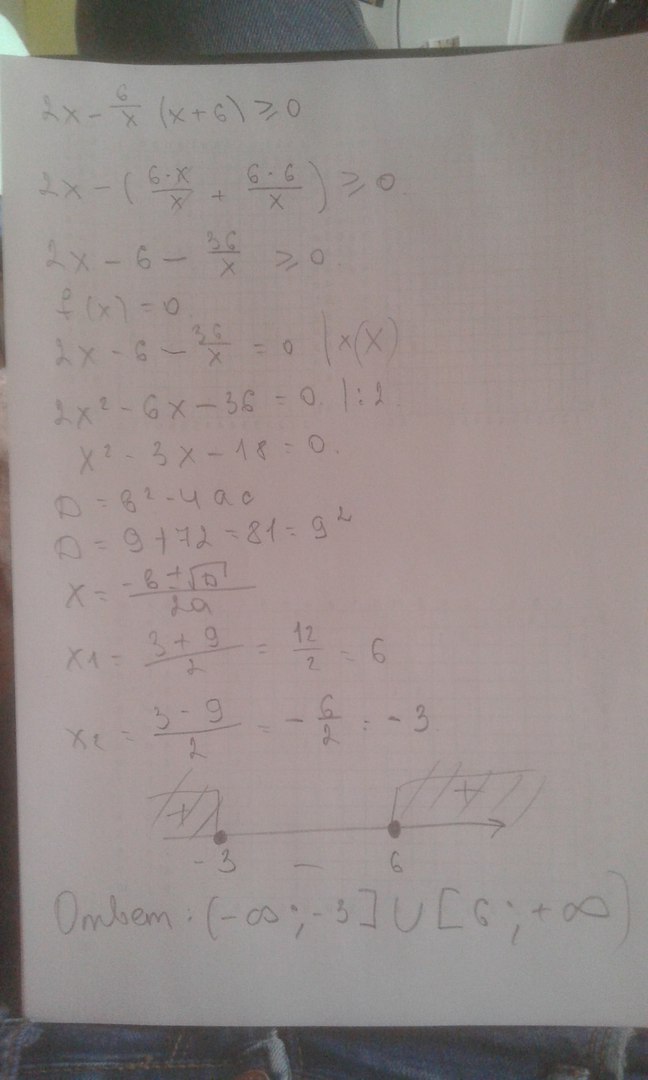 2x - 6/x (x+6) ≥ 0
2x - (6·x/x + 6·6/x) ≥ 0.
2x - 6 - 36/x ≥ 0.
f(x) = 0
2x - 6 - 36/x = 0 | x(X)
2x² - 6x - 36 = 0. | : 2.
x² - 3x - 18 = 0.
D = в² - 4ac
D = 9 + 72 = 81 = 9²
x = -в ± √D / 2a
x1 = 3+9/2 = 12/2 = 6
x2 = 3-9/2 = -6/2 = -3.
+ +
-3 — 6
Ответ: (-∞; -3] ∪ [6; +∞)